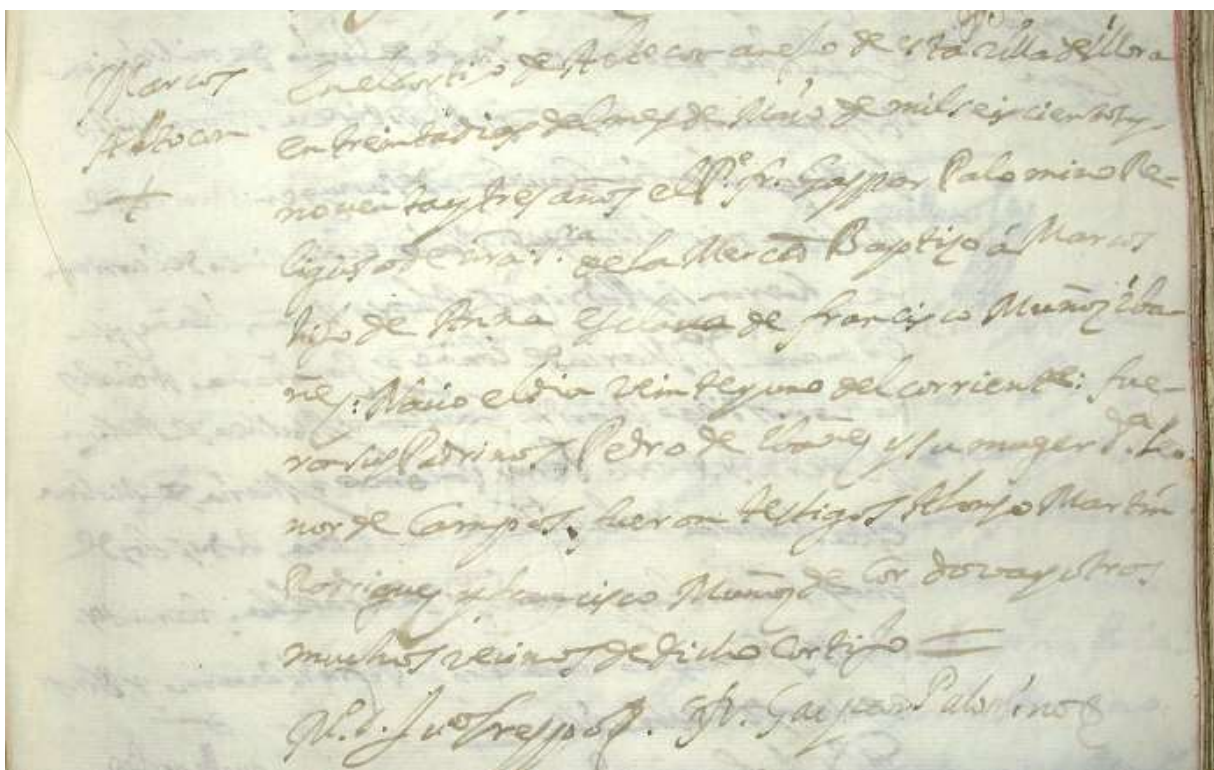 Marcos
Allocon
En el cortijo de Allocon anejo de esta villa de Illora
en treinta dias del mes de Maio de mil seiscientos y
noventa y tres años el P.e fr. Gaspar Palomino Re-
ligioso de nra s.ra de la Merced Baptizo á Marcos
hijo de Anna esclava de francisco Muñoz iba-
ñez: Nacio el dia veinte y uno del corriente: fue-
ron sus Padrinos Pedro de ibañez y su muger D.a Leo
nor de Campos, fueron testigos Alonso Martin
Rodriguez y francisco Muñoz de Cordova y otros
muchos vecinos de dicho Cortijo =
fr. Gaspar Palomino